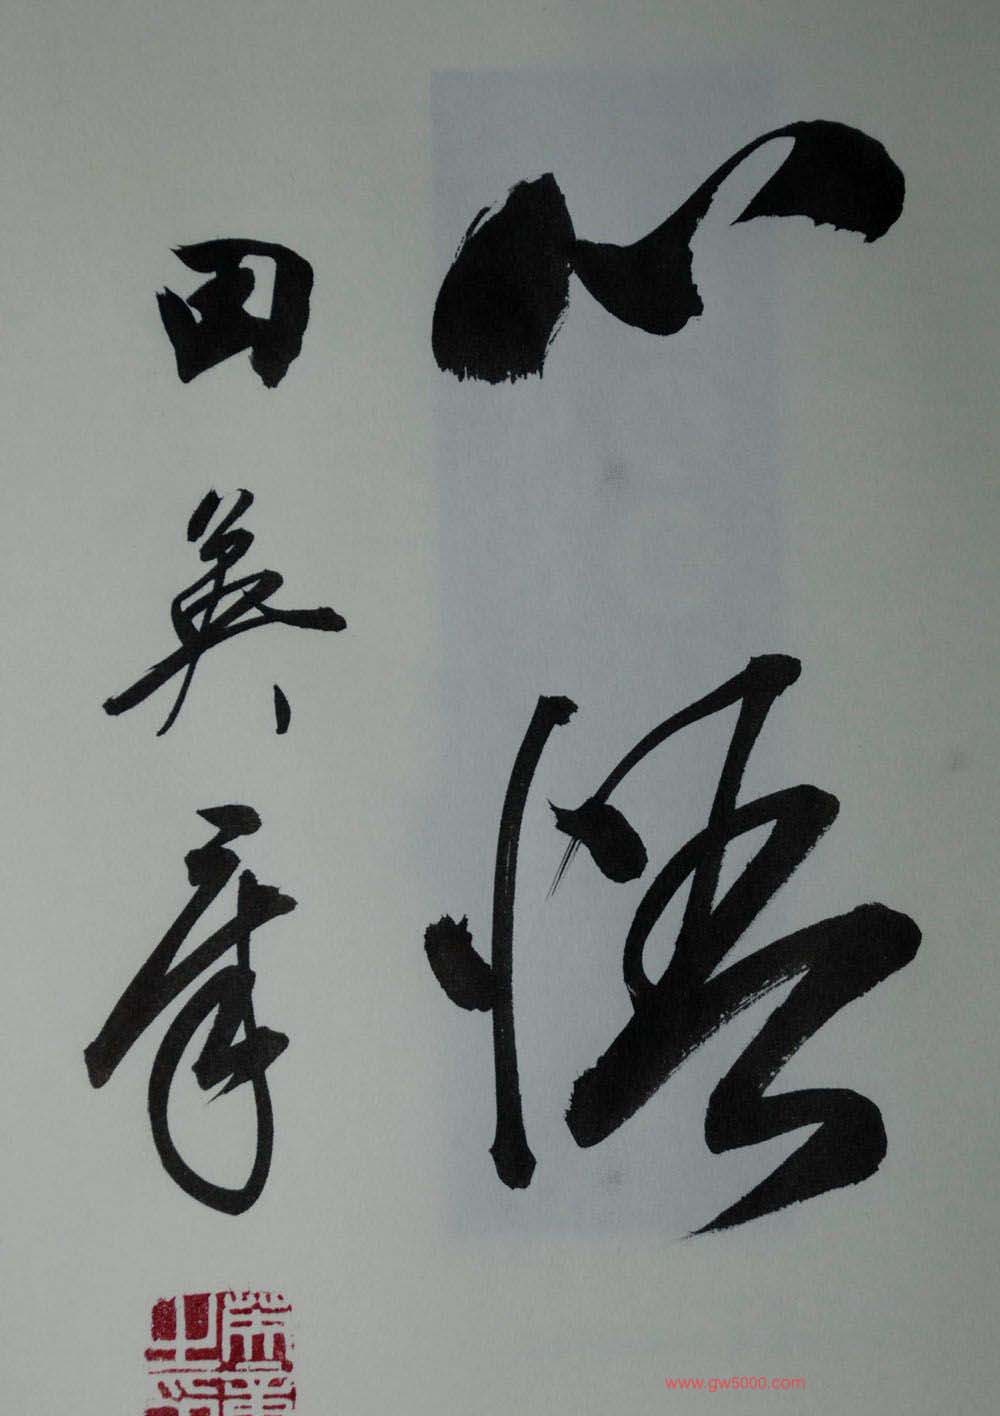 心悟
田英章
www.gw5000.com